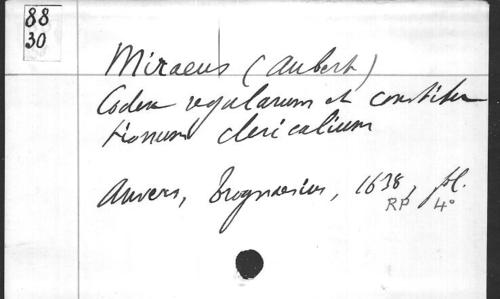 88
30
Miraeus (Aubert)
Codex regularum et constitu
tionum clericalium
Anvers, Trognaesius, 1638, fol.
RP 4°